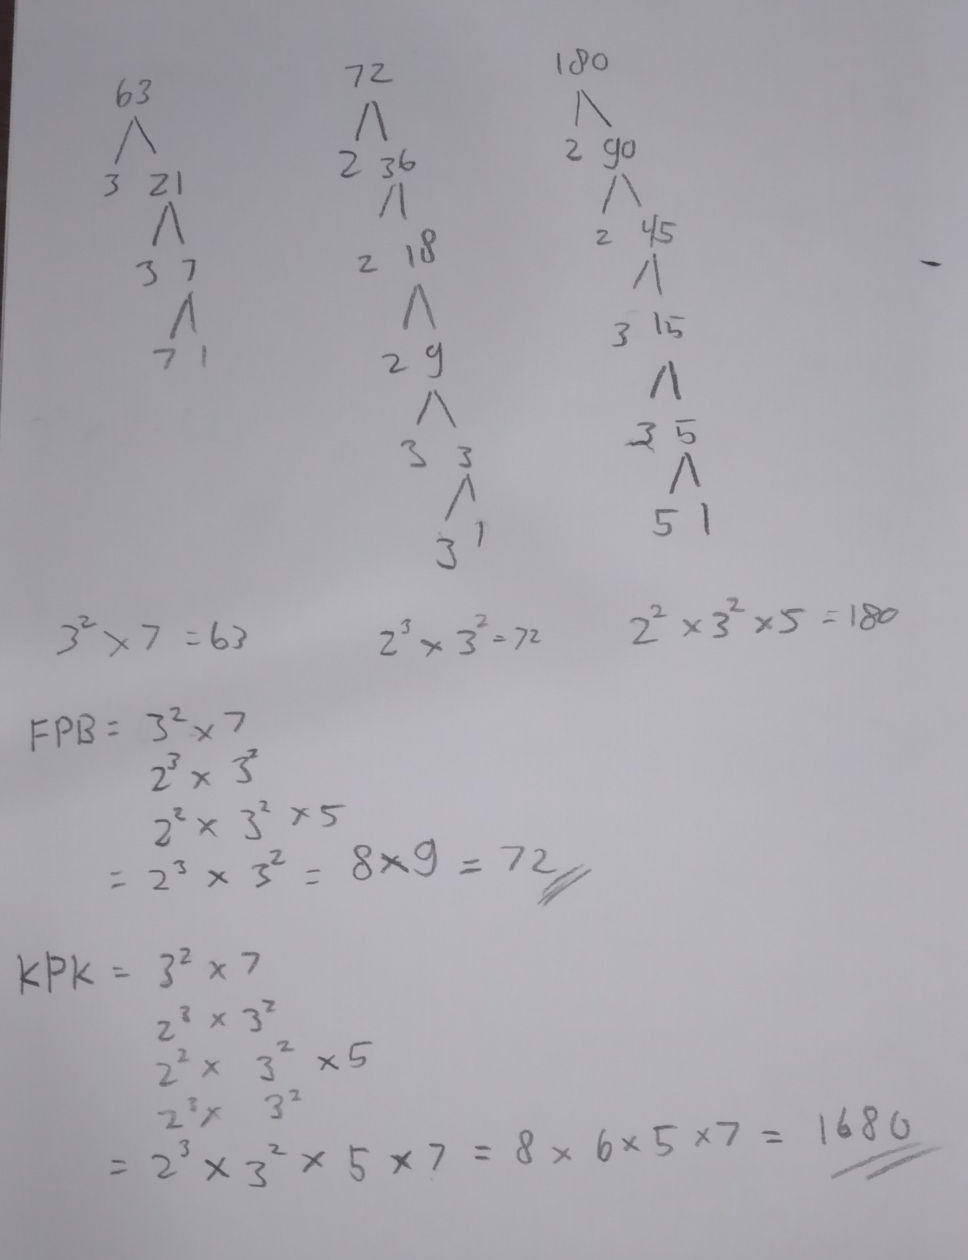 63
3 21
3 7
7 1
72
2 36
2 18
2 9
3 3
3 1
180
2 90
2 45
3 15
3 5
5 1
3² × 7 = 63
2³ × 3² = 72
2² × 3² × 5 = 180
FPB = 3² × 7
2³ × 3²
2² × 3² × 5
= 2³ × 3² = 8 × 9 = 72
KPK = 3² × 7
2³ × 3²
2² × 3² × 5
2³ × 3²
= 2³ × 3² × 5 × 7 = 8 × 6 × 5 × 7 = 1680